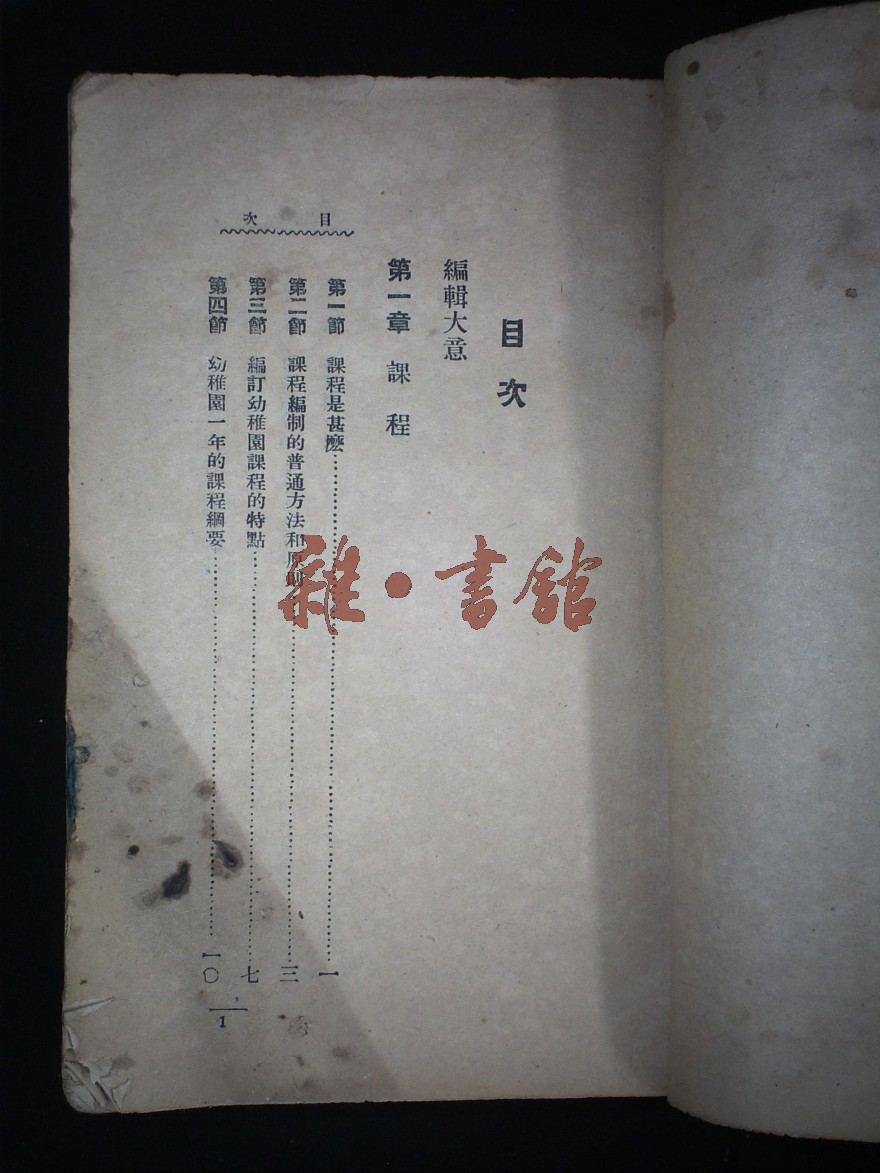 目次
編輯大意
第一章 課程
第一節 課程是甚麽……一
第二節 課程編制的普通方法和原則……三
第三節 編訂幼稚園課程的特點……七
第四節 幼稚園一年的課程綱要……一〇
目次
1
雜·書館